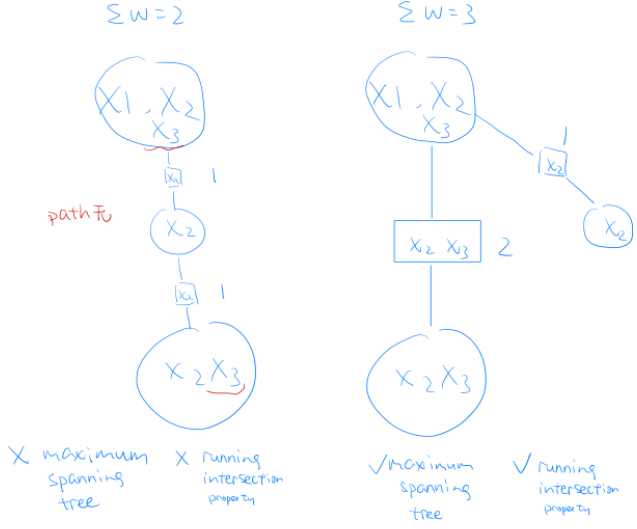 Σ W = 2
X1, X2
X3
X2 1
path无
X2
X2 1
X2 X3
X maximum
spanning
tree
X running
intersection
property
Σ W = 3
X1, X2
X3
1
X2
X2
X2 X3 2
X2 X3
✓ maximum
spanning
tree
✓ running
intersection
property